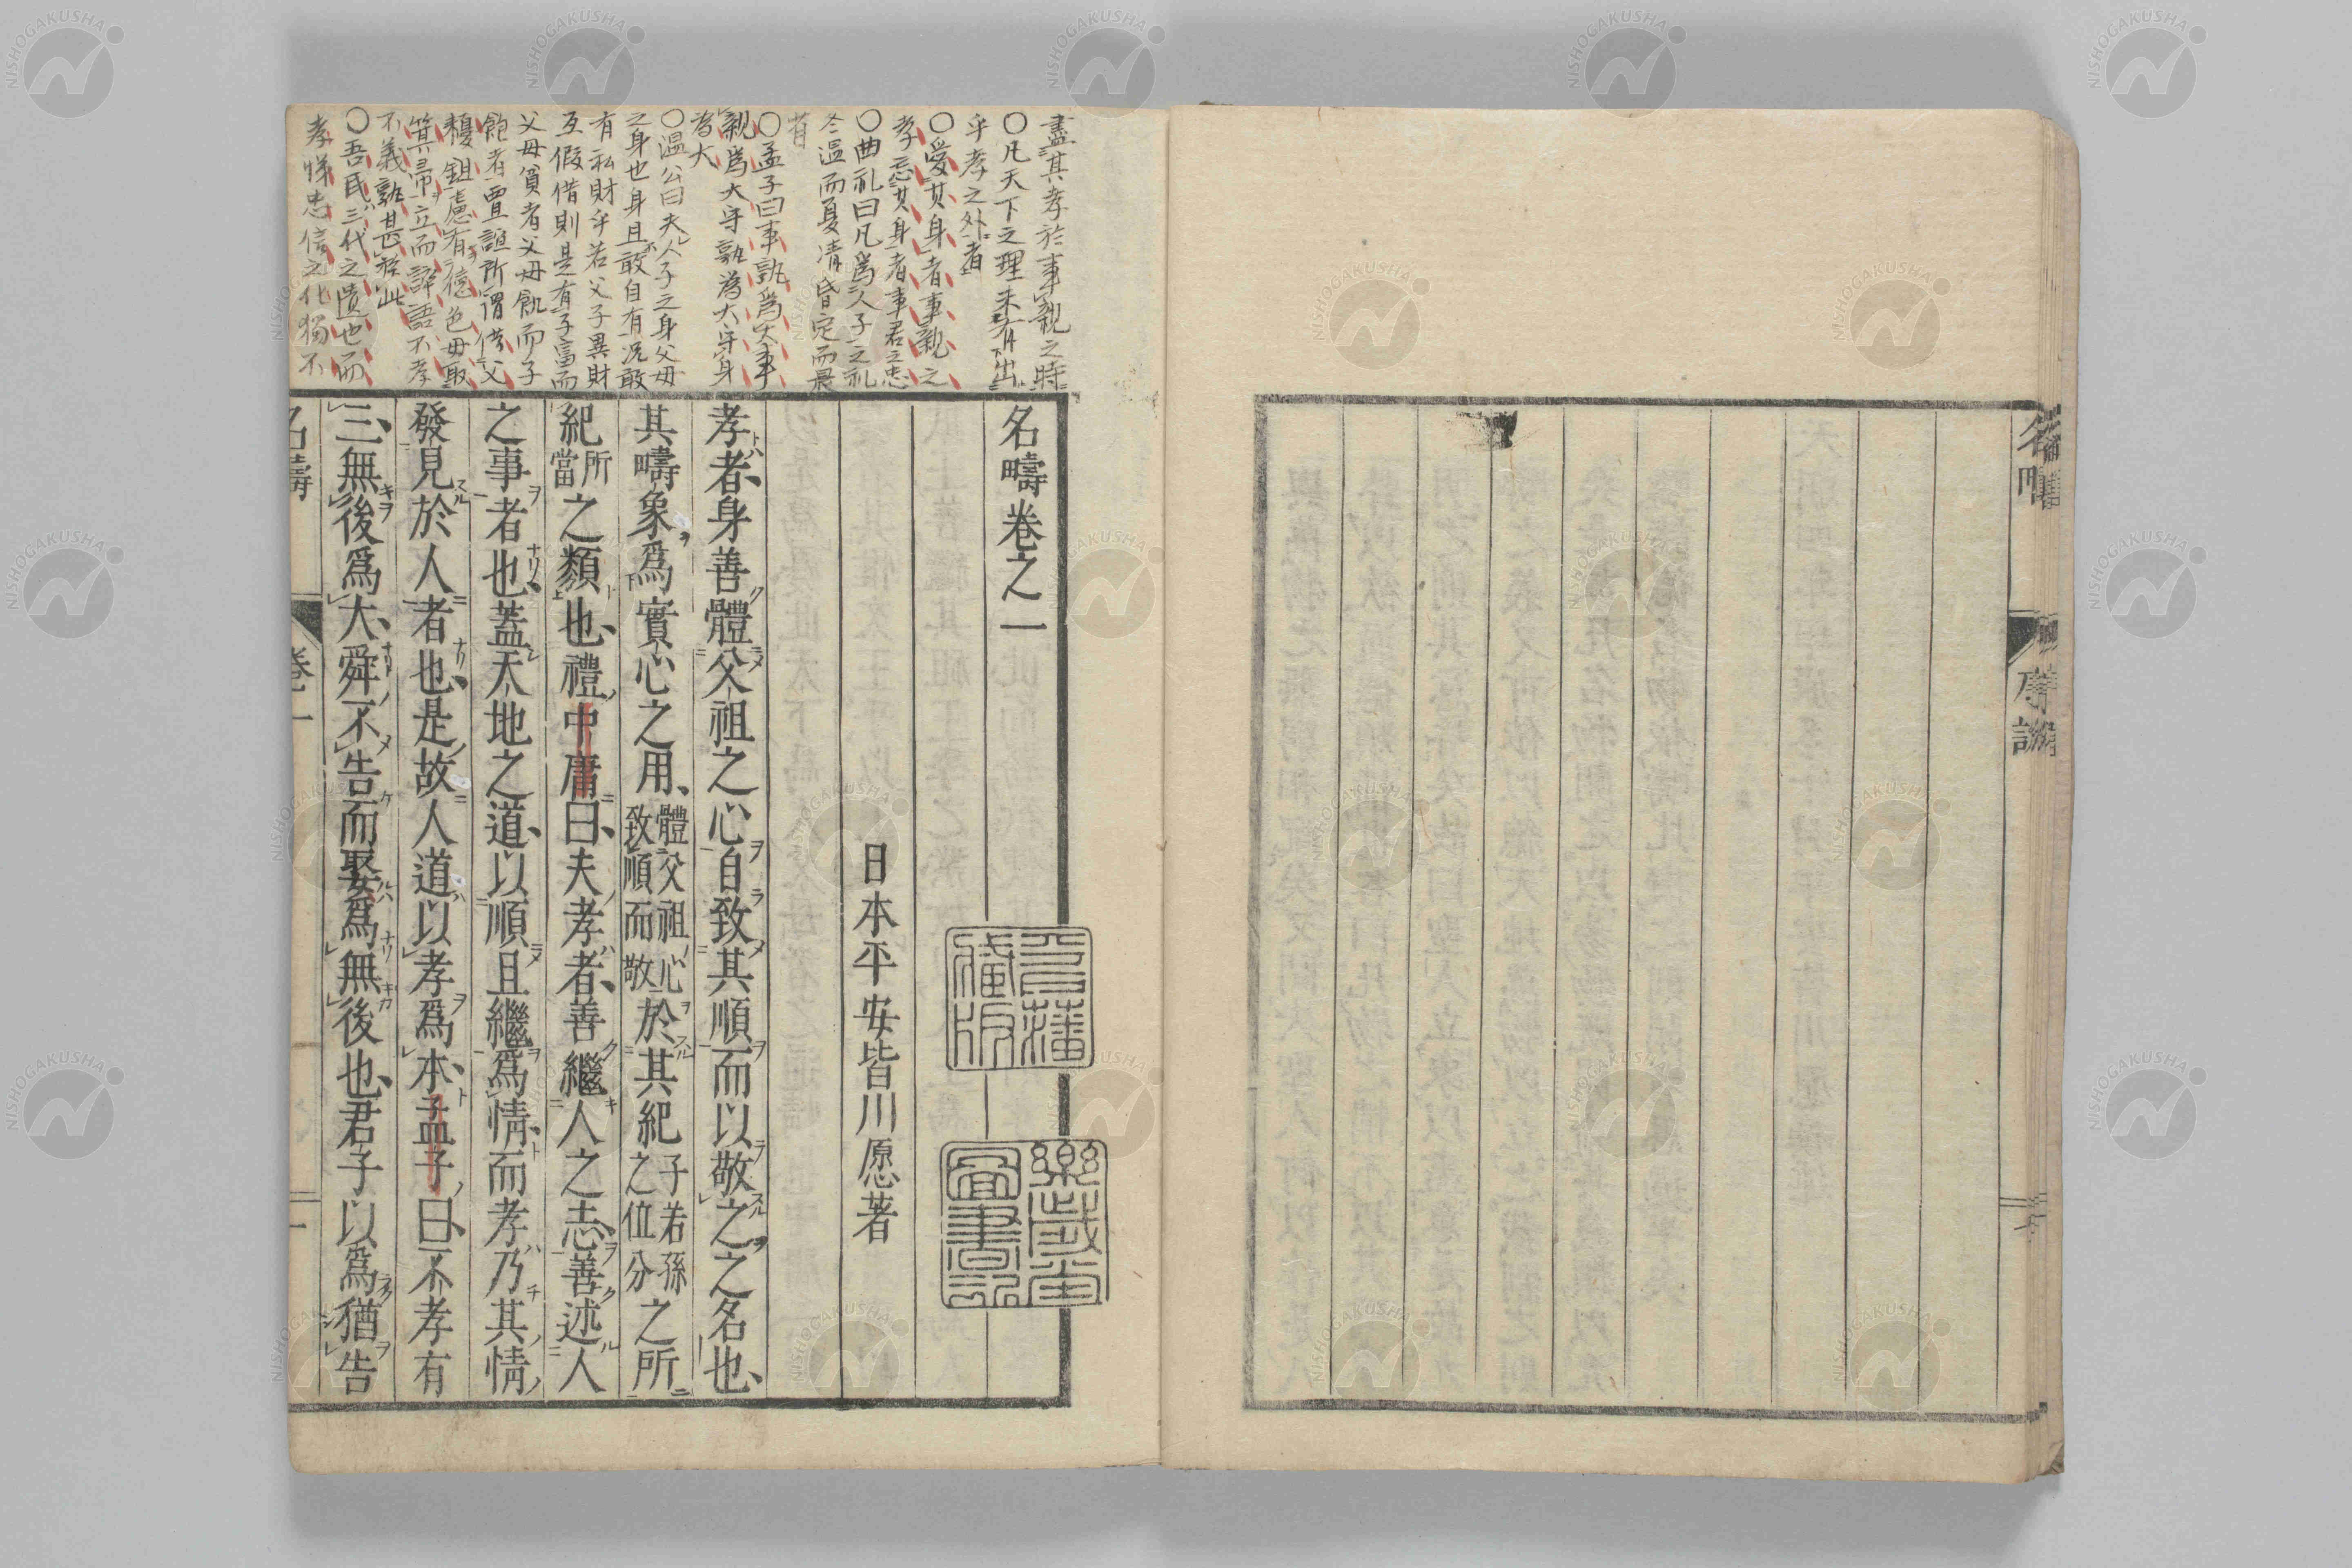 盡其孝於事親之時
〇凡天下之理未有出
乎孝之外者
〇愛其身者事親之
孝忘其身者事君之忠
〇曲礼曰凡爲人子之礼
冬温而夏凊昏定而晨
省
〇孟子曰事孰爲大事
親爲大守孰為大守身
為大
〇温公曰夫人子之身父母
之身也身且不敢自有况敢
有私財乎若父子異財
互假借則是有子富而
父母貧者父母飢而子
飽者賈誼所謂借父
耰鉏慮有德色母取
箕帚立而誶語不孝
不義孰甚於此
〇吾民三代之遺也而
孝悌忠信之化獨不
名疇卷之一
日本平安皆川愿著
孝者身善體父祖之心自致其順而以敬之之名也
其疇象爲實心之用體父祖心致順而敬於其紀子若孫之位分之所
紀所當之類也禮中庸曰夫孝者善繼人之志善述人
之事者也蓋天地之道以順且繼爲情而孝乃其情
發見於人者也是故人道以孝爲本孟子曰不孝有
三無後爲大舜不告而娶爲無後也君子以爲猶告
名疇 卷一 一
樂歲堂
圖書記
NISHOGAKUSHA